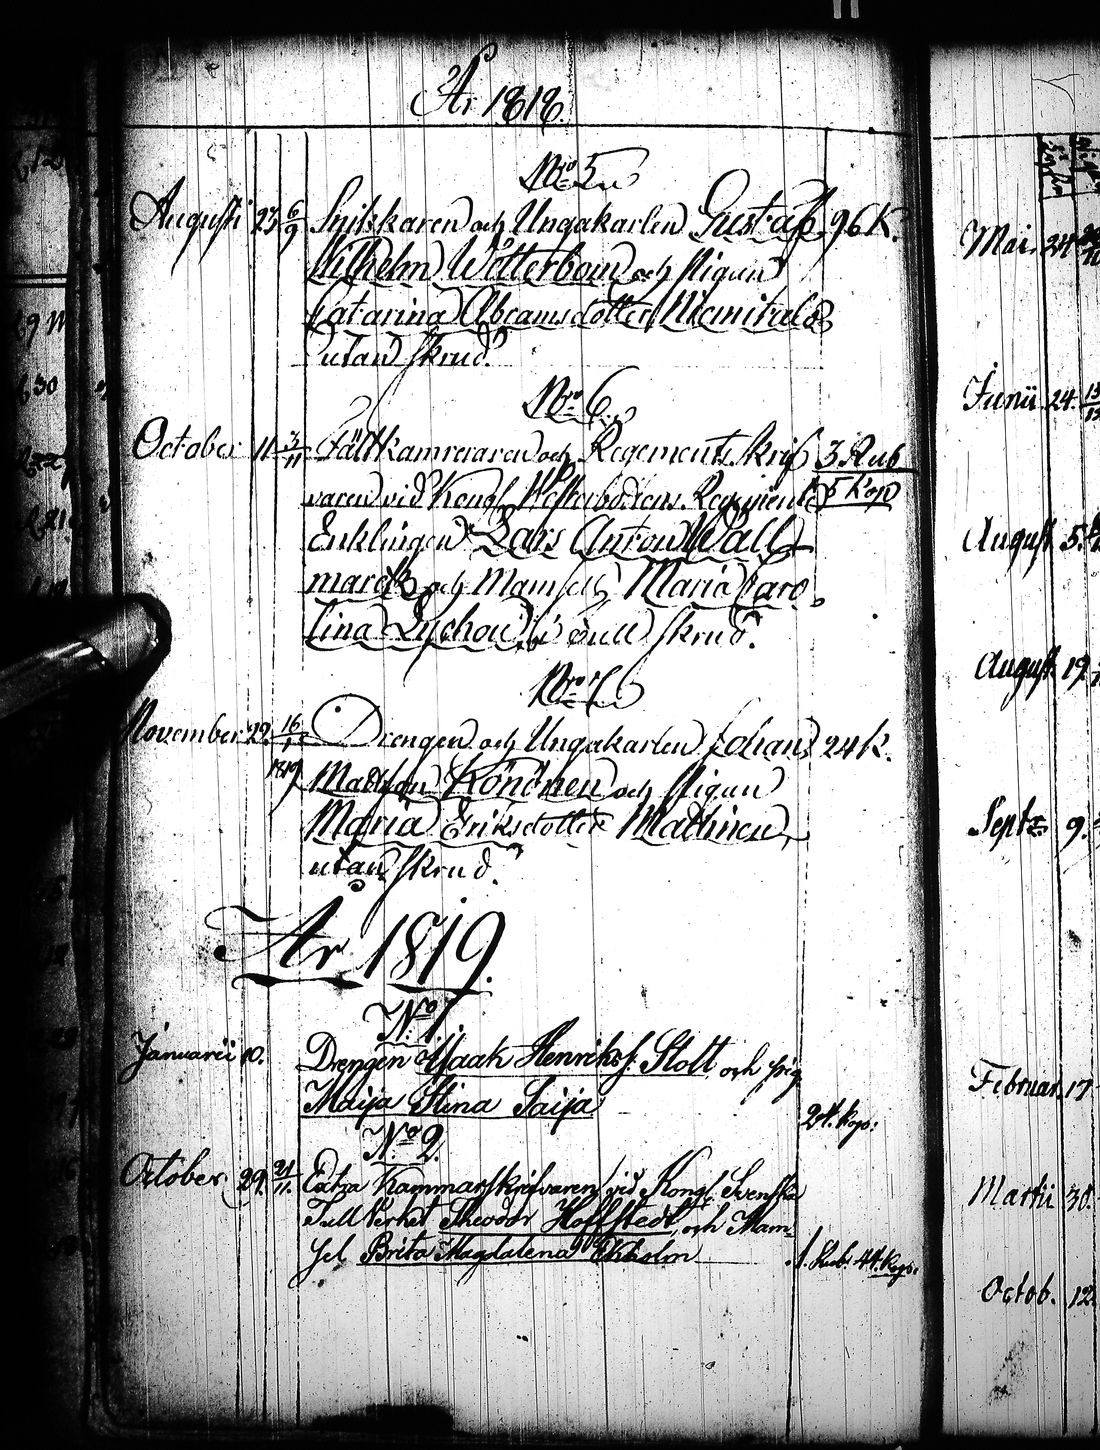 År 1818.
No 5
Augusti 23 6/9 Snikkaren och Ungakarlen Gustaf 96 K.
Wilhelm Wetterbom och Pigan
Catarina Abramsdotter Niemitalo
utan skrud.
No 6
October 11 3/11 Fältkamreraren och Regements skrif 3 Rub
varen vid Kongl. Westerbottens Regimente 5 Kop
Enklingen Lars Anton Wall
marck och Mamsell Maria Caro
lina Lychou, i full skrud.
No 7
November 29. 16/1 Drengen och Ungakarlen Johan 24 K.
1819 Mattsson Könönen och Pigan
Maria Eriksdotter Mathinen,
utan skrud.
År 1819.
No 1.
Januarii 10. Drengen Isaak Henrikss. Stolt och pig
Maija Stina Saija
24. kop:
No 2.
October 29. 21/11. Extra Kammarskrifvaren vid Kongl. Svenska
TullVerket Theodor Hoffstedt, och Mam-
sel Brita Magdalena Ekholm 1. Rub. 44. kop.
Mai 24
Junii 24. 13
August. 5.
August. 19
Sept. 9.
Februar. 17
Martii 30.
Octob. 12